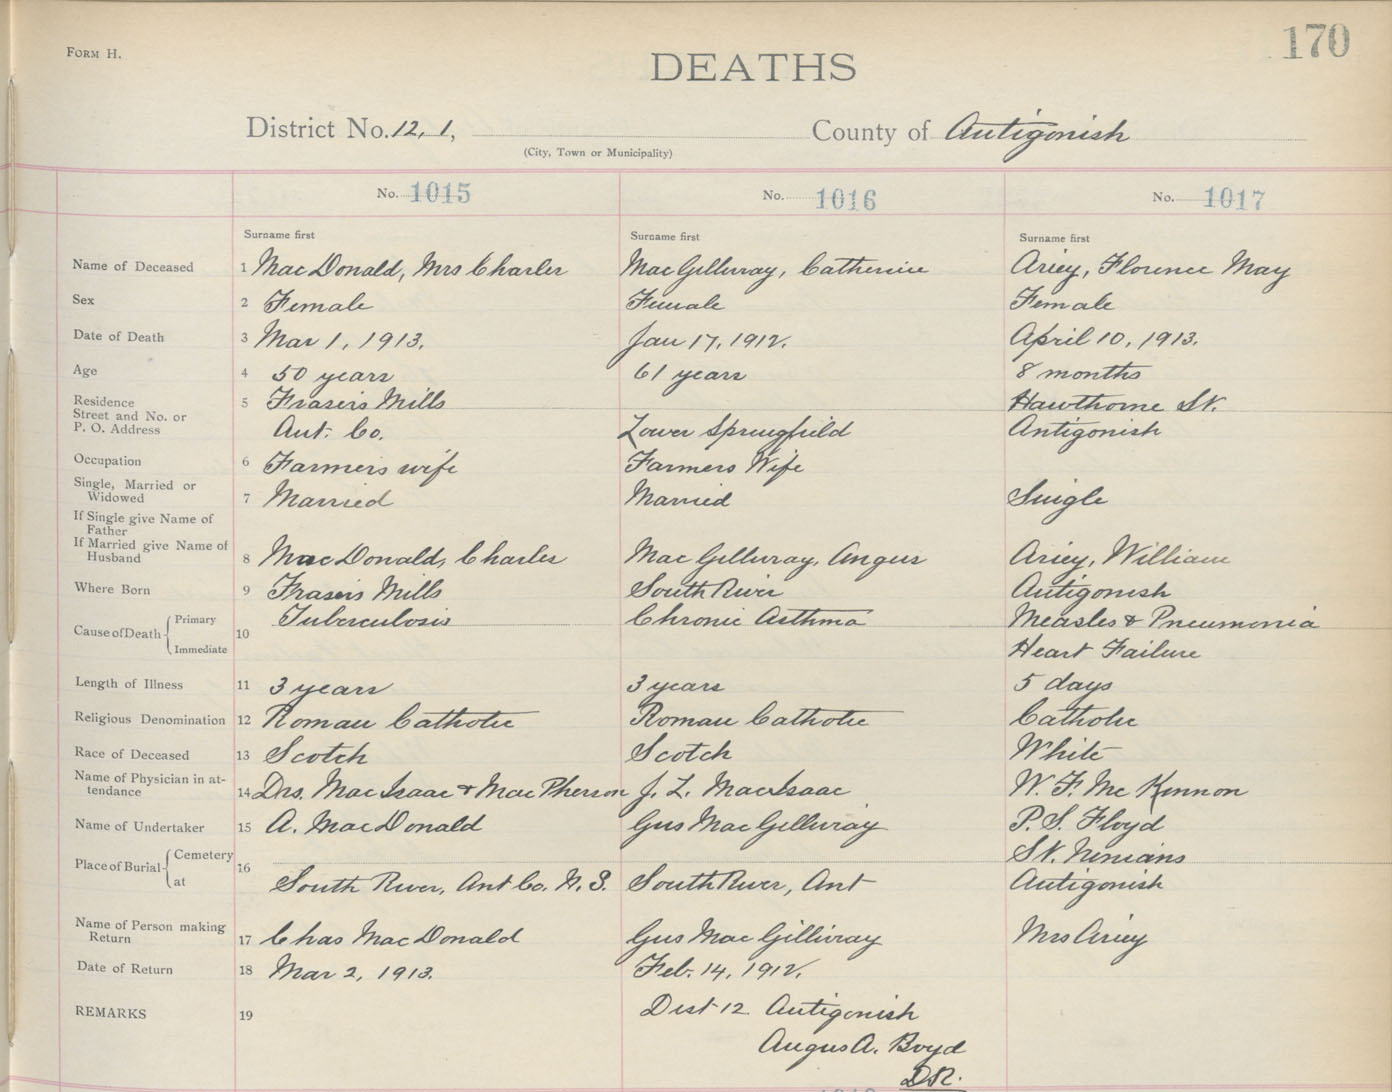 FORM H.
170
DEATHS
District No. 12, 1, County of Antigonish
(City, Town or Municipality)
No. 1015 No. 1016 No. 1017
Surname first Surname first Surname first
Name of Deceased 1 MacDonald, Mrs Charles MacGillivray, Catherine Ariey, Florence May
Sex 2 Female Female Female
Date of Death 3 Mar 1, 1913. Jan 17, 1912. April 10, 1913.
Age 4 50 years 61 years 8 months
Residence 5 Frasers Mills Hawthorne St.
Street and No. or
P. O. Address Ant. Co. Lower Springfield Antigonish
Occupation 6 Farmers wife Farmers Wife
Single, Married or
Widowed 7 Married Married Single
If Single give Name of
Father
If Married give Name of
Husband 8 MacDonald, Charles MacGillivray, Angus Ariey, William
Where Born 9 Frasers Mills South River Antigonish
Cause of Death Primary 10 Tuberculosis Chronic Asthma Measles & Pneumonia
Immediate Heart Failure
Length of Illness 11 3 years 3 years 5 days
Religious Denomination 12 Roman Catholic Roman Catholic Catholic
Race of Deceased 13 Scotch Scotch White
Name of Physician in at-
tendance 14 Drs. MacIsaac & MacPherson J. L. MacIsaac W. F. McKinnon
Name of Undertaker 15 A. MacDonald Gus MacGillivray P. S. Floyd
Place of Burial Cemetery 16 St. Ninians
at South River, Ant Co. N. S. South River, Ant Antigonish
Name of Person making
Return 17 Chas MacDonald Gus MacGillivray Mrs Ariey
Date of Return 18 Mar 2, 1913. Feb. 14, 1912.
REMARKS 19 Dist 12 Antigonish
Angus A. Boyd
D.R.